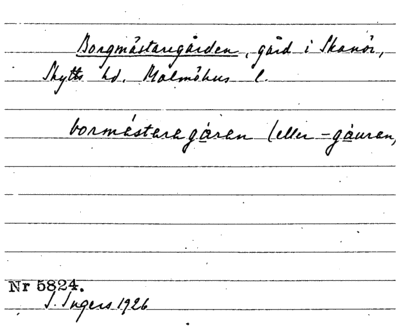 Borgmästaregården, gård i Skanör,
Skytts hd. Malmöhus l.
bormästaragåren (eller -gåuren,
Nr 5824.
I. Ingers 1926